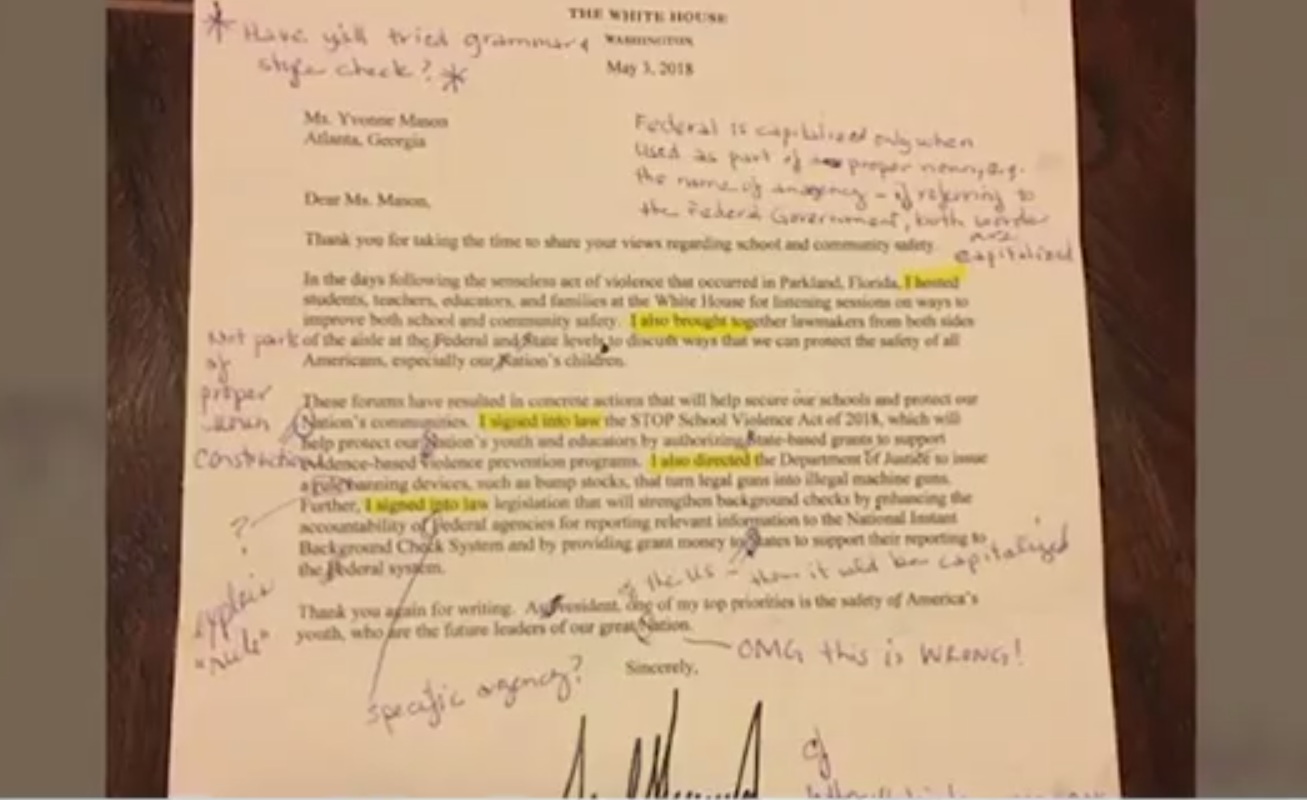 THE WHITE HOUSE
* Have y'all tried grammar & WASHINGTON
style check? *
May 3, 2018
Ms. Yvonne Mason
Atlanta, Georgia
Federal is capitalized only when
used as part of proper noun, e.g.
the name of an agency - if referring to
the Federal Government, both words
are
capitalized
Dear Ms. Mason,
Thank you for taking the time to share your views regarding school and community safety.
In the days following the senseless act of violence that occurred in Parkland, Florida, I hosted
students, teachers, educators, and families at the White House for listening sessions on ways to
improve both school and community safety. I also brought together lawmakers from both sides
of the aisle at the Federal and State levels to discuss ways that we can protect the safety of all
Americans, especially our Nation's children.
Not part
of
proper
noun
construction
These forums have resulted in concrete actions that will help secure our schools and protect our
Nation's communities. I signed into law the STOP School Violence Act of 2018, which will
help protect our Nation's youth and educators by authorizing State-based grants to support
evidence-based violence prevention programs. I also directed the Department of Justice to issue
a rule banning devices, such as bump stocks, that turn legal guns into illegal machine guns.
Further, I signed into law legislation that will strengthen background checks by enhancing the
accountability of Federal agencies for reporting relevant information to the National Instant
Background Check System and by providing grant money to States to support their reporting to
the Federal system.
?
explain
"rule"
of the US - then it would be capitalized
Thank you again for writing. As President, one of my top priorities is the safety of America's
youth, who are the future leaders of our great Nation.
OMG this is WRONG!
Sincerely,
specific agency?
of